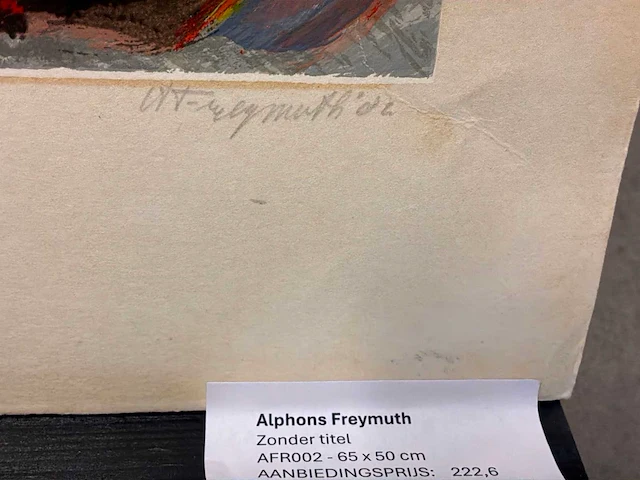 Freymuth '82
Alphons Freymuth
Zonder titel
AFR002 - 65 x 50 cm
AANBIEDINGSPRIJS: 222,6